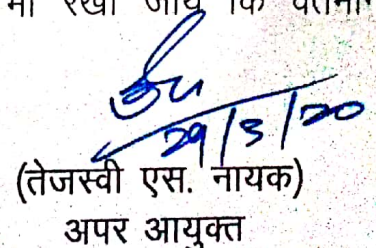 रखी जाय कि वर्तमान
29/3/20
(तेजस्वी एस. नायक)
अपर आयुक्त